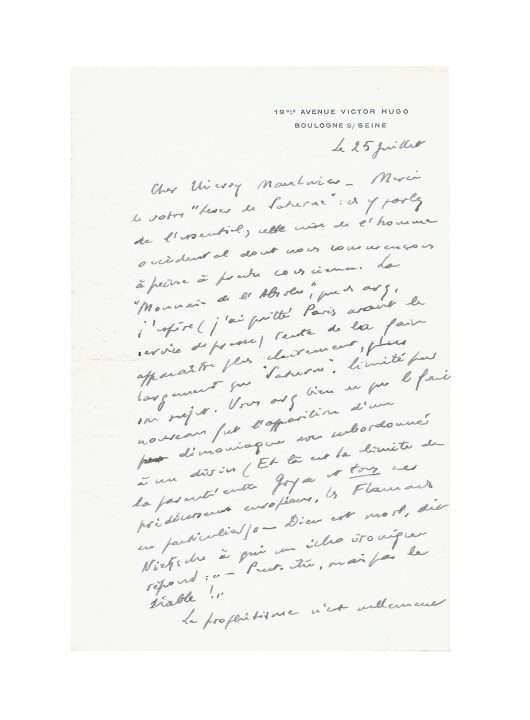 19BIS AVENUE VICTOR HUGO
BOULOGNE S/ SEINE
Le 25 juillet
Cher Thierry Maulnier – Merci
de votre "Essai de Saturne": il y parle
de l'essentiel, cette crise de l'homme
occidental dont nous commençons
à peine à prendre conscience. La
"Monnaie de l'Absolu", que vous avez,
j'espère (j'ai quitté Paris avant le
service de presse) tente de la faire
apparaître plus clairement, plus
largement que "Saturne", limité par
son sujet. Vous avez bien vu que le fait
nouveau fut l'apparition d'un
démoniaque non subordonné
à un divin (Et là est la limite de
la parenté entre Goya et tous ses
prédécesseurs européens, les Flamands
en particulier) – Dieu est mort, dit
Nietzsche à qui un écho ironique
répond : "– Peut-être, mais pas le
diable !"
Le prophétisme n'est nullement